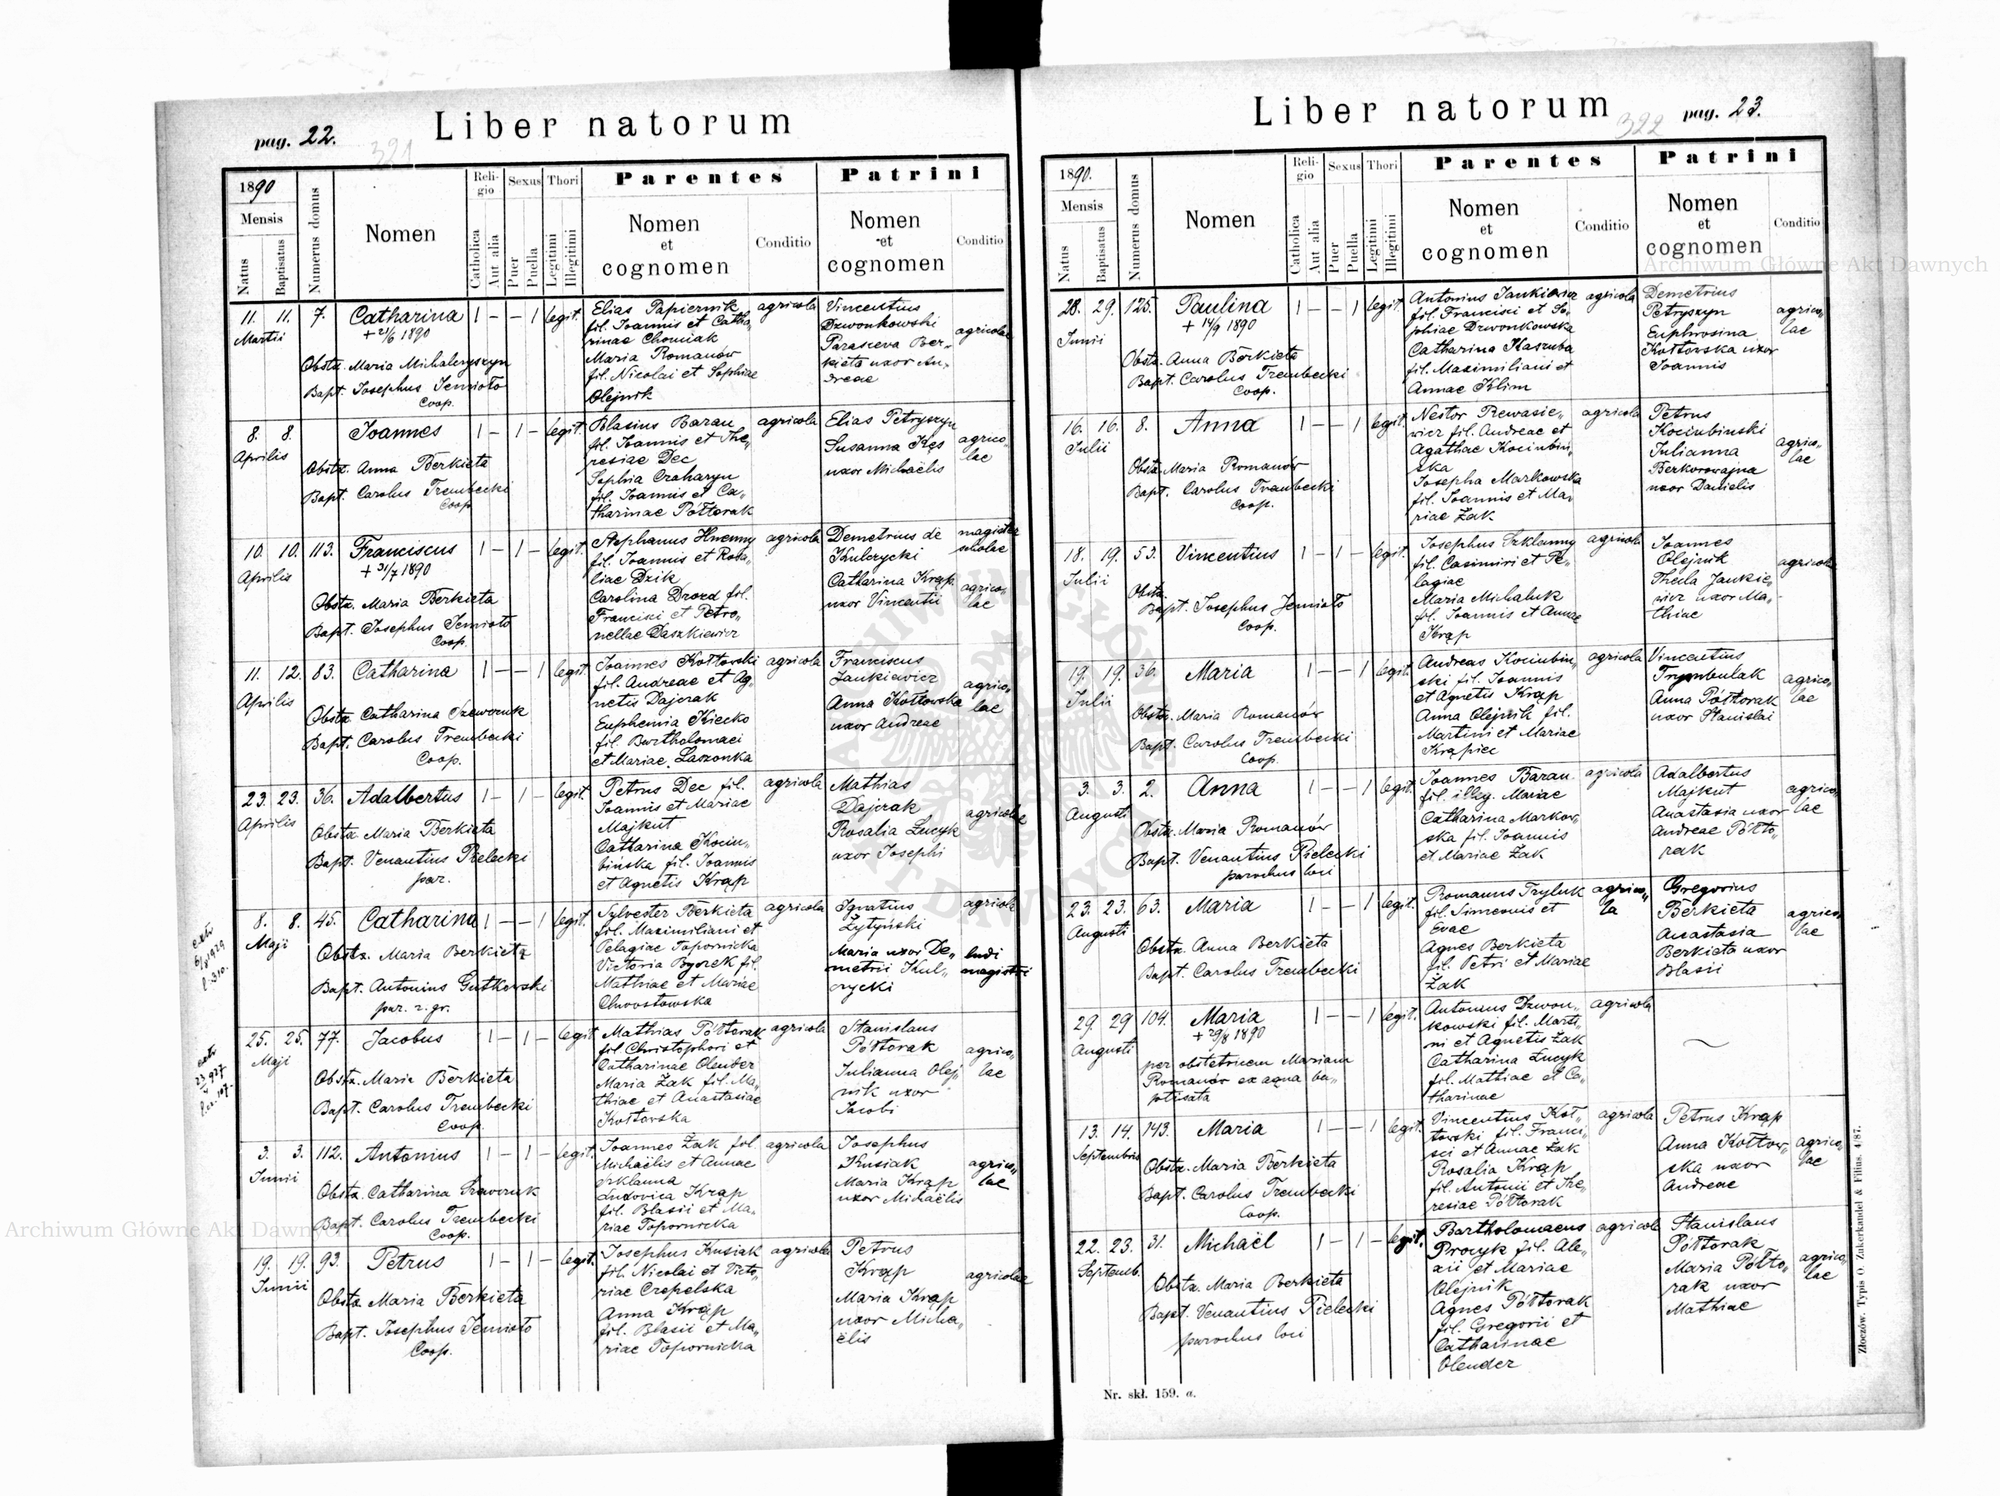 pag. 22.
Liber natorum
1890
Mensis
Natus
Baptisatus
Numerus domus
Nomen
Religio
Catholica
Aut alia
Sexus
Puer
Puella
Thori
Legitimi
Illegitimi
Parentes
Nomen
et
cognomen
Conditio
Patrini
Nomen
et
cognomen
Conditio
11. 11. 7. Catharina 1 – – 1 legit.
Martii
+ 21/6 1890
Obstx. Maria Michalczyszyn
Bapt. Josephus Jemioło
Coop.
Elias Papiernik
fil. Joannis et Catha„
rinae Chomiak
Maria Romanów
fil. Nicolai et Sophiae
Olejnik
agricola
Vincentius
Dzwonkowski
Parasceva Ber„
kieta uxor An„
dreae
agricolae
8. 8. Joannes 1 – 1 – legit.
Aprilis
Obstx. Anna Berkieta
Bapt. Carolus Trembecki
Coop.
Blasius Baran
fil. Joannis et The„
resiae Dec
Sophia Czaharyn
fil. Joannis et Ca„
tharinae Półtorak
agricola
Elias Petryszyn
Susanna Kęs
uxor Michaëlis
agrico„
lae
10. 10. 113. Franciscus 1 – 1 – legit.
Aprilis
+ 31/7 1890
Obstx. Maria Berkieta
Bapt. Josephus Jemioło
Coop.
Stephanus Hnenny
fil. Joannis et Rosa„
liae Dzik
Carolina Drozd fil.
Francisci et Petro„
nellae Daszkiewicz
agricola
Demetrius de
Kulczycki
Catharina Krąp
uxor Vincentii
magister
scholae
agrico„
lae
11. 12. 83. Catharina 1 – – 1 legit.
Aprilis
Obstx. Catharina Szewczuk
Bapt. Carolus Trembecki
Coop.
Joannes Kołtowski
fil. Andreae et Ag„
netis Dajczak
Euphemia Kiecko
fil. Bartholomaei
et Mariae Laszonka
agricola
Franciscus
Jankiewicz
Anna Kołtowska
uxor Andreae
agrico„
lae
23. 23. 36. Adalbertus 1 – 1 – legit.
Aprilis
Obstx. Maria Berkieta
Bapt. Venantius Pielecki
par.
Petrus Dec fil.
Joannis et Mariae
Majkut
Catharina Kociu„
bińska fil. Joannis
et Agnetis Krąp
agricola
Mathias
Dajczak
Rosalia Lucyk
uxor Josephi
agricolae
8. 8. 45. Catharina 1 – – 1 legit.
Maji
Obstx. Maria Berkieta
Bapt. Antonius Gutkowski
par. r. gr.
Sylvester Berkieta
fil. Maximiliani et
Pelagiae Topornicka
Victoria Byczek fil.
Mathiae et Mariae
Chwostowska
agricola
Ignatius
Żytyński
Maria uxor De„
metrii Kul„
czycki
agricola
ludi
magistri
25. 25. 77. Jacobus 1 – 1 – legit.
Maji
Obstx. Maria Berkieta
Bapt. Carolus Trembecki
Coop.
Mathias Półtorak
fil. Christophori et
Catharinae Olender
Maria Żak fil. Ma„
thiae et Anastasiae
Kołtowska
agricola
Stanislaus
Półtorak
Julianna Olej„
nik uxor
Jacobi
agrico„
lae
3. 3. 112. Antonius 1 – 1 – legit.
Junii
Obstx. Catharina Szewczuk
Bapt. Carolus Trembecki
Coop.
Joannes Żak fil.
Michaëlis et Annae
Szklanna
Ludovica Krąp
fil. Blasii et Ma„
riae Topornicka
agricola
Josephus
Kusiak
Maria Krąp
uxor Michaëlis
agrico„
lae
19. 19. 93. Petrus 1 – 1 – legit.
Junii
Obstx. Maria Berkieta
Bapt. Josephus Jemioło
Coop.
Josephus Kusiak
fil. Nicolai et Victo„
riae Czepelska
Anna Krąp
fil. Blasii et Ma„
riae Topornicka
agricola
Petrus
Krąp
Maria Krąp
uxor Micha„
ëlis
agricolae
Liber natorum
pag. 23.
1890.
Mensis
Natus
Baptisatus
Numerus domus
Nomen
Religio
Catholica
Aut alia
Sexus
Puer
Puella
Thori
Legitimi
Illegitimi
Parentes
Nomen
et
cognomen
Conditio
Patrini
Nomen
et
cognomen
Conditio
28. 29. 125. Paulina 1 – – 1 legit.
Junii
+ 14/9 1890
Obstx. Anna Berkieta
Bapt. Carolus Trembecki
Coop.
Antonius Jankiewicz
fil. Francisci et So„
phiae Dzwonkowska
Catharina Kaszuba
fil. Maximiliani et
Annae Klim
agricola
Demetrius
Petryszyn
Euphrosina
Kołtowska uxor
Joannis
agrico„
lae
16. 16. 8. Anna 1 – – 1 legit.
Julii
Obstx. Maria Romanów
Bapt. Carolus Trembecki
Coop.
Nestor Rewasie„
wicz fil. Andreae et
Agathae Kociubiń„
ska
Josepha Markowska
fil. Joannis et Ma„
riae Żak
agricola
Petrus
Kociubinski
Julianna
Berkorowajna
uxor Danielis
agrico„
lae
18. 19. 53. Vincentius 1 – 1 – legit.
Julii
Obstx.
Bapt. Josephus Jemioło
Coop.
Josephus Szklanny
fil. Casimiri et Pe„
lagiae
Maria Michaluk
fil. Joannis et Annae
Krąp
agricola
Joannes
Olejnik
Thecla Jankie„
wicz uxor Ma„
thiae
agricolae
19. 19. 36. Maria 1 – – 1 legit.
Julii
Obstx. Maria Romanów
Bapt. Carolus Trembecki
Coop.
Andreas Kociubin„
ski fil. Joannis
et Agnetis Krąp
Anna Olejnik fil.
Martini et Mariae
Krąpiec
agricola
Vincentius
Trymbulak
Anna Półtorak
uxor Stanislai
agrico„
lae
3. 3. 2. Anna 1 – – 1 legit.
Augusti
Obstx. Maria Romanów
Bapt. Venantius Pielecki
parochus loci
Joannes Baran
fil. illeg. Mariae
Catharina Markow„
ska fil. Joannis
et Mariae Żak
agricola
Adalbertus
Majkut
Anastasia uxor
Andreae Półto„
rak
agrico„
lae
23. 23. 63. Maria 1 – – 1 legit.
Augusti
Obstx. Anna Berkieta
Bapt. Carolus Trembecki
Romanus Tryluk
fil. Simeonis et
Evae
Agnes Berkieta
fil. Petri et Mariae
Żak
agrico„
la
Gregorius
Berkieta
Anastasia
Berkieta uxor
Blasii
agrico„
lae
29. 29 104. Maria 1 – – 1 legit.
Augusti
+ 29/8 1890
per obstetricem Mariam
Romanów ex aqua ba„
ptisata
Antonius Dzwon„
kowski fil. Marti„
ni et Agnetis Żak
Catharina Lucyk
fil. Mathiae et Ca„
tharinae
agricola
13. 14. 143. Maria 1 – – 1 legit.
Septembris
Obstx. Maria Berkieta
Bapt. Carolus Trembecki
Coop.
Vincentius Koł„
towski fil. Franci„
sci et Annae Żak
Rosalia Krąp
fil. Antonii et The„
resiae Półtorak
agricola
Petrus Krąp
Anna Kołtow„
ska uxor
Andreae
agrico„
lae
22. 23. 31. Michaël 1 – 1 – legit.
Septemb.
Obstx. Maria Berkieta
Bapt. Venantius Pielecki
parochus loci
Bartholomaeus
Procyk fil. Ale„
xii et Mariae
Olejnik
Agnes Półtorak
fil. Gregorii et
Catharinae
Olender
agricola
Stanislaus
Półtorak
Maria Półto„
rak uxor
Mathiae
agrico„
lae
Nr. skł. 159. a.
Złoczów. Typis O. Zukerkandel & Filius. 4/87.
Archiwum Główne Akt Dawnych
Archiwum Główne Akt Dawnych